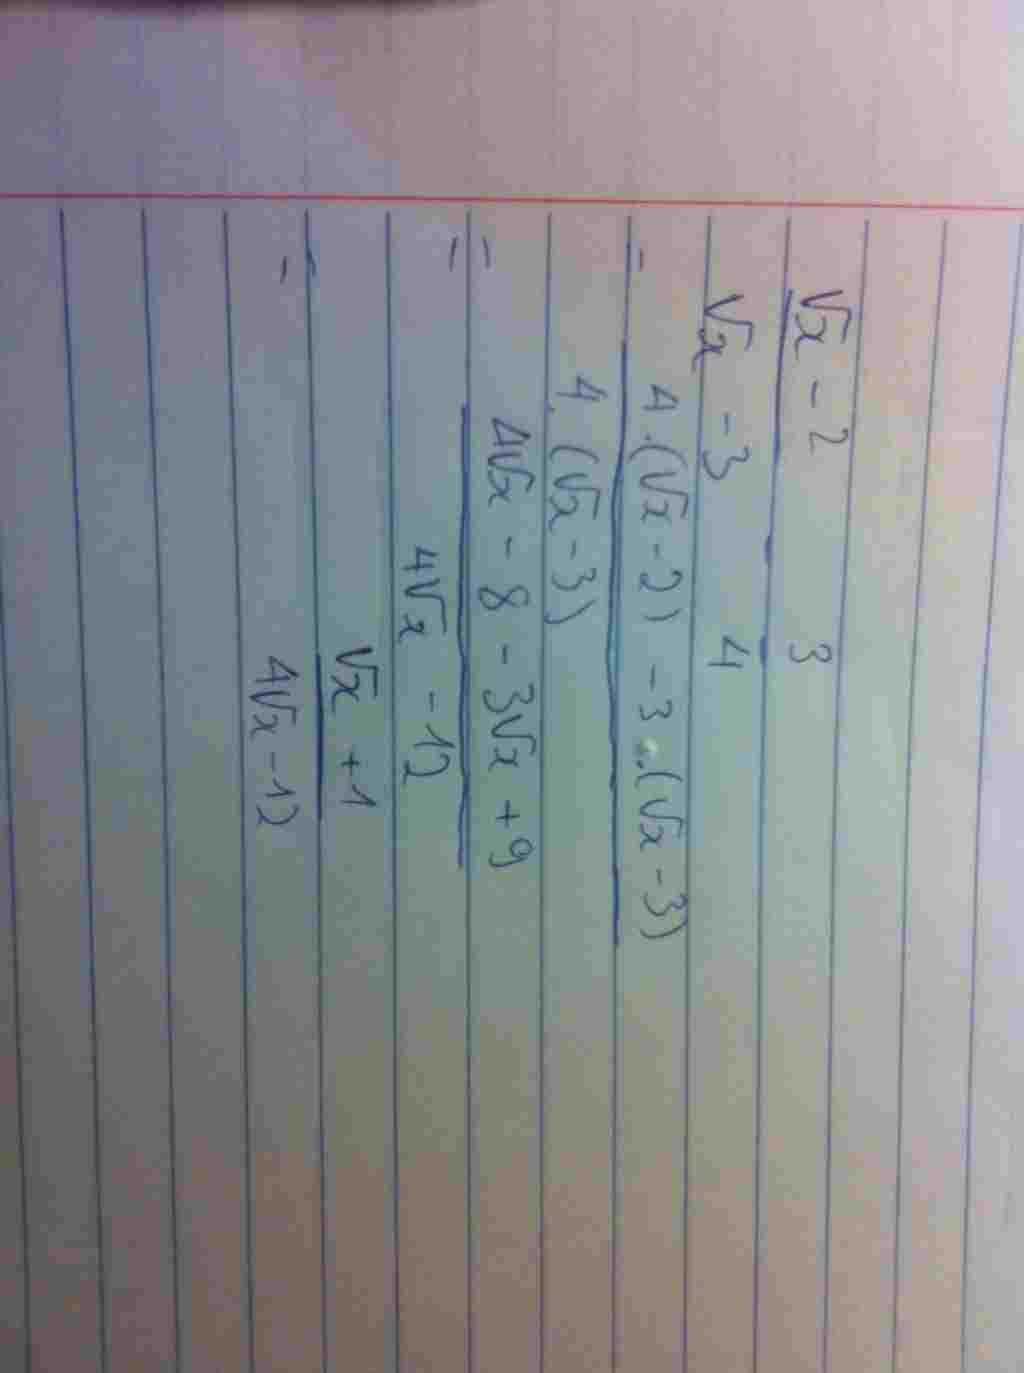 √x - 2 3
√x - 3 4
= 4.(√x - 2) - 3.(√x - 3)
4.(√x - 3)
= 4√x - 8 - 3√x + 9
= 4√x - 12
√x + 1
= 4√x - 12